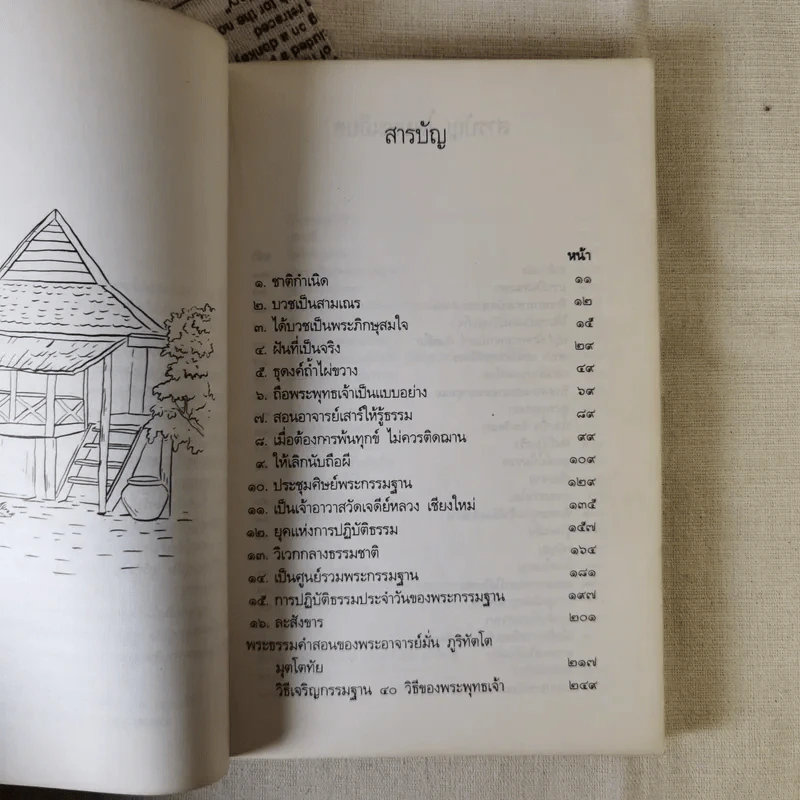 สารบัญ
หน้า
๑. ชาติกำเนิด ๑๑
๒. บวชเป็นสามเณร ๑๒
๓. ได้บวชเป็นพระภิกษุสมใจ ๑๕
๔. ฝันที่เป็นจริง ๒๙
๕. ธุดงค์ถ้ำไผ่ขวาง ๔๙
๖. ถือพระพุทธเจ้าเป็นแบบอย่าง ๖๙
๗. สอนอาจารย์เสาร์ให้รู้ธรรม ๘๙
๘. เมื่อต้องการพ้นทุกข์ ไม่ควรติดฌาน ๙๙
๙. ให้เลิกนับถือผี ๑๐๙
๑๐. ประชุมศิษย์พระกรรมฐาน ๑๒๙
๑๑. เป็นเจ้าอาวาสวัดเจดีย์หลวง เชียงใหม่ ๑๓๕
๑๒. ยุคแห่งการปฏิบัติธรรม ๑๕๗
๑๓. วิเวกกลางธรรมชาติ ๑๖๔
๑๔. เป็นศูนย์รวมพระกรรมฐาน ๑๘๑
๑๕. การปฏิบัติธรรมประจำวันของพระกรรมฐาน ๑๙๗
๑๖. ละสังขาร ๒๐๑
พระธรรมคำสอนของพระอาจารย์มั่น ภูริทัตโต
มุตโตทัย ๒๑๗
วิธีเจริญกรรมฐาน ๔๐ วิธีของพระพุทธเจ้า ๒๔๙